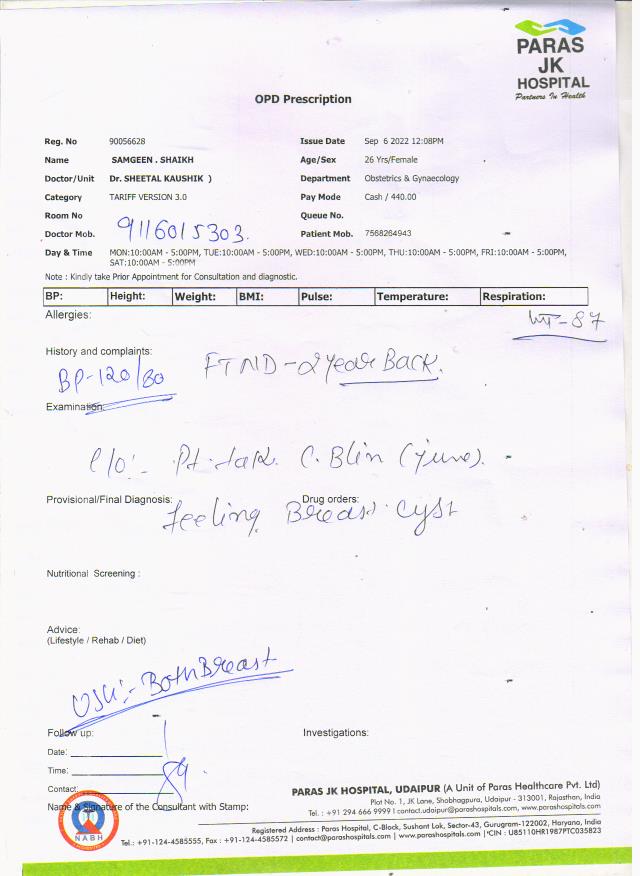 PARAS
JK
HOSPITAL
Partners In Health
OPD Prescription
Reg. No 90056628 Issue Date Sep 6 2022 12:08PM
Name SAMGEEN . SHAIKH Age/Sex 26 Yrs/Female
Doctor/Unit Dr. SHEETAL KAUSHIK ) Department Obstetrics & Gynaecology
Category TARIFF VERSION 3.0 Pay Mode Cash / 440.00
Room No Queue No.
Doctor Mob. 9116015303. Patient Mob. 7568264943
Day & Time MON:10:00AM - 5:00PM, TUE:10:00AM - 5:00PM, WED:10:00AM - 5:00PM, THU:10:00AM - 5:00PM, FRI:10:00AM - 5:00PM,
SAT:10:00AM - 5:00PM
Note : Kindly take Prior Appointment for Consultation and diagnostic.
BP: Height: Weight: BMI: Pulse: Temperature: Respiration:
Allergies: WT-87
History and complaints:
BP-120/80 FTND-2 year Back.
Examination:
C/o:- Pt. tak. C. Blin (june).
Provisional/Final Diagnosis: Drug orders:
feeling Breast cyst
Nutritional Screening :
Advice:
(Lifestyle / Rehab / Diet)
USG:- Both Breast
Follow up: Investigations:
Date:
Time:
Contact:
Name & Signature of the Consultant with Stamp:
NABH
PARAS JK HOSPITAL, UDAIPUR (A Unit of Paras Healthcare Pvt. Ltd)
Plot No. 1, JK Lane, Shobhagpura, Udaipur - 313001, Rajasthan, India
Tel. : +91 294 666 9999 | contact.udaipur@parashospitals.com | www.parashospitals.com
Registered Address : Paras Hospital, C-Block, Sushant Lok, Sector-43, Gurugram-122002, Haryana, India
Tel.: +91-124-4585555, Fax : +91-124-4585572 | contact@parashospitals.com | www.parashospitals.com | CIN : U85110HR1987PTC035823